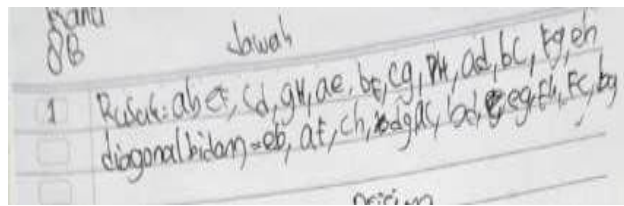 8B
Jawab
1 Rusuk: ab ef, cd, gH, ae, bf, cg, DH, ad, bC, fg, eh
diagonal bidang = eb, af, ch, dg ac, bd, eg, fh, FC, bg